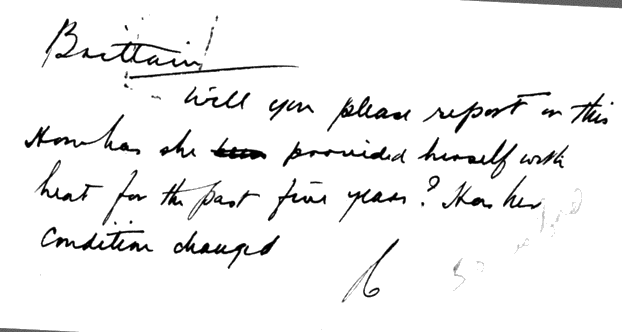 Brittain
Will you please report on this
How has she provided herself with
heat for the past five years? Has her
condition changed